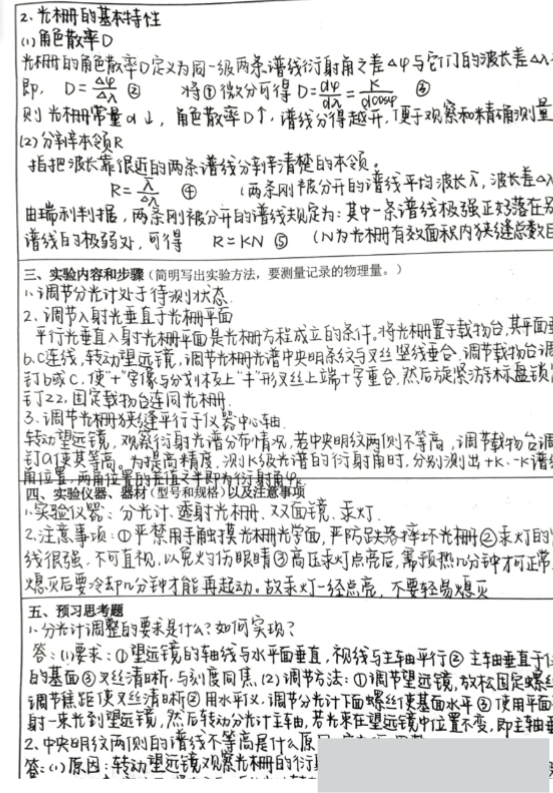 2、光栅的基本特性
(1)角色散率D
光栅的角色散率D定义为同一级两条谱线衍射角之差Δφ与它们的波长差Δλ
即, D=Δφ/Δλ ② 将①微分可得 D=dφ/dλ=K/dcosφ ③
则光栅常量d↓，角色散率D↑，谱线分得越开，便于观察和精确测量
(2)分辨本领R
指把波长靠很近的两条谱线分辨清楚的本领。
R=λ/Δλ ④ (两条刚被分开的谱线平均波长λ，波长差Δλ
由瑞利判据，两条刚被分开的谱线规定为：其中一条谱线极强正好落在另
谱线的极弱处，可得 R=KN ⑤ (N为光栅有效面积内狭缝总数目
三、实验内容和步骤（简明写出实验方法，要测量记录的物理量。）
1、调节分光计处于待测状态
2、调节入射光垂直于光栅平面
平行光垂直入射光栅平面是光栅方程成立的条件。将光栅置于载物台，其平面垂
b、c连线，转动望远镜，调节光栅光谱中央明条纹与叉丝竖线重合、调节载物台调
钉b或c，使"十"字像与分划板上"十"形叉丝上端十字重合，然后旋紧游标盘锁
钉22，固定载物台连同光栅。
3、调节光栅狭缝平行于仪器中心轴
转动望远镜，观察衍射光谱分布情况，若中央明纹两侧不等高，调节载物台调
钉a使其等高。为提高精度，测K级光谱的衍射角时，分别测出+K、-K谱
角位置，两角位置的差值之半即为衍射角φ。
四、实验仪器、器材（型号和规格）以及注意事项
1、实验仪器：分光计、透射光栅、双面镜、汞灯.
2、注意事项：①严禁用手触摸光栅光学面，严防跌落摔坏光栅②汞灯的
线很强，不可直视，以免灼伤眼睛③高压汞灯点亮后，需预热几分钟才可正常
熄灭后要冷却几分钟才能再起动。故汞灯一经点亮，不要轻易熄灭
五、预习思考题
1、分光计调整的要求是什么？如何实现？
答：(1)要求：①望远镜的轴线与水平面垂直，视线与主轴平行② 主轴垂直于
的基面③叉丝清晰，与刻度同焦、(2)调节方法：①调节望远镜，放松固定螺丝
调节焦距使叉丝清晰②用水平仪，调节分光计下面螺丝使基面水平③使用平面
射一束光到望远镜，然后转动分光计主轴，若光束在望远镜中位置不变，即主轴垂
2、中央明纹两侧的谱线不等高是什么原
答：(1)原因：转动望远镜观察光栅的衍射